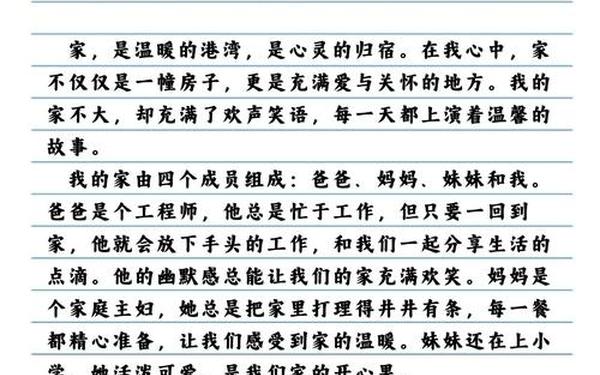 家，是温暖的港湾，是心灵的归宿。在我心中，家
不仅仅是一幢房子，更是充满爱与关怀的地方。我的
家不大，却充满了欢声笑语，每一天都上演着温馨的
故事。
我的家由四个成员组成：爸爸、妈妈、妹妹和我。
爸爸是个工程师，他总是忙于工作，但只要一回到
家，他就会放下手头的工作，和我们一起分享生活的
点滴。他的幽默感总能让我们的家充满欢笑。妈妈是
个家庭主妇，她总是把家里打理得井井有条，每一餐
都精心准备，让我们感受到家的温暖。妹妹还在上小
学，她活泼可爱，是我们家的开心果。